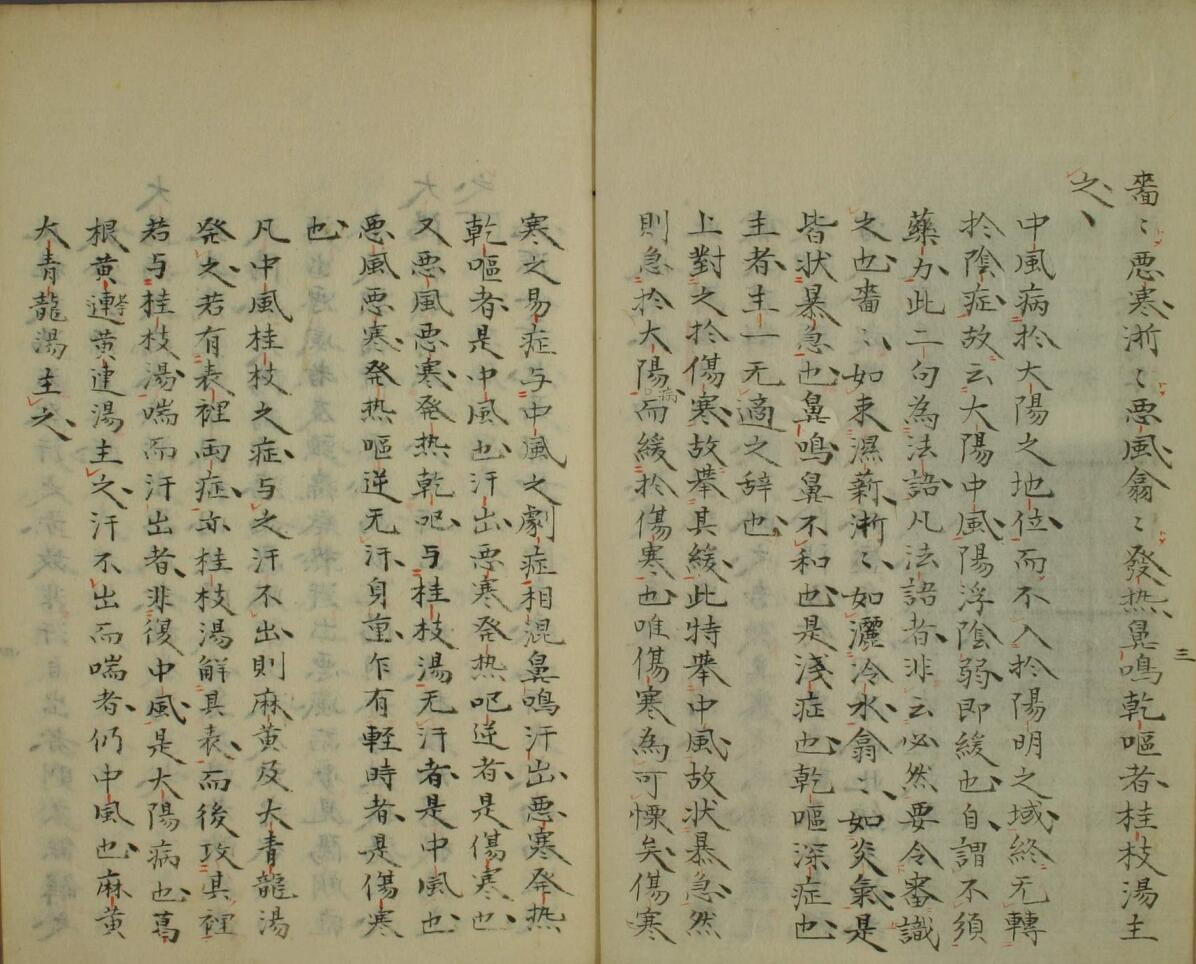 嗇〻悪寒淅〻悪風翕〻發热鼻鳴乾嘔者桂枝湯主
之
中風病於大陽之地位而不入於陽明之域終无轉
於陰症故云大陽中風陽浮陰弱即緩也自謂不須
藥力此二句為法語凡法語者非云必然要令審識
之也嗇〻如束濕薪淅〻如灑冷水翕〻如炎氣是
皆状暴急也鼻鳴鼻不和也是淺症也乾嘔深症也
主者主一无適之辞也
上對之於傷寒故挙其緩此特挙中風故状暴急然
則急於大陽病而緩於傷寒也唯傷寒為可慄矣傷寒
三
寒之易症与中風之劇症相混鼻鳴汗出悪寒発热
乾嘔者是中風也汗出悪寒発热吧逆者是傷寒也
又悪風悪寒発热乾吧与桂枝湯无汗者是中風也
悪風悪寒発热嘔逆无汗身重乍有軽時者是傷寒
也
凡中風桂枝之症与之汗不出則麻黄及大青龍湯
発之若有表裡両症亦桂枝湯解其表而後攻其裡
若与桂枝湯喘而汗出者非復中風是大陽病也葛
根黄連黄連湯主之汗不出而喘者仍中風也麻黄
大青龍湯主之